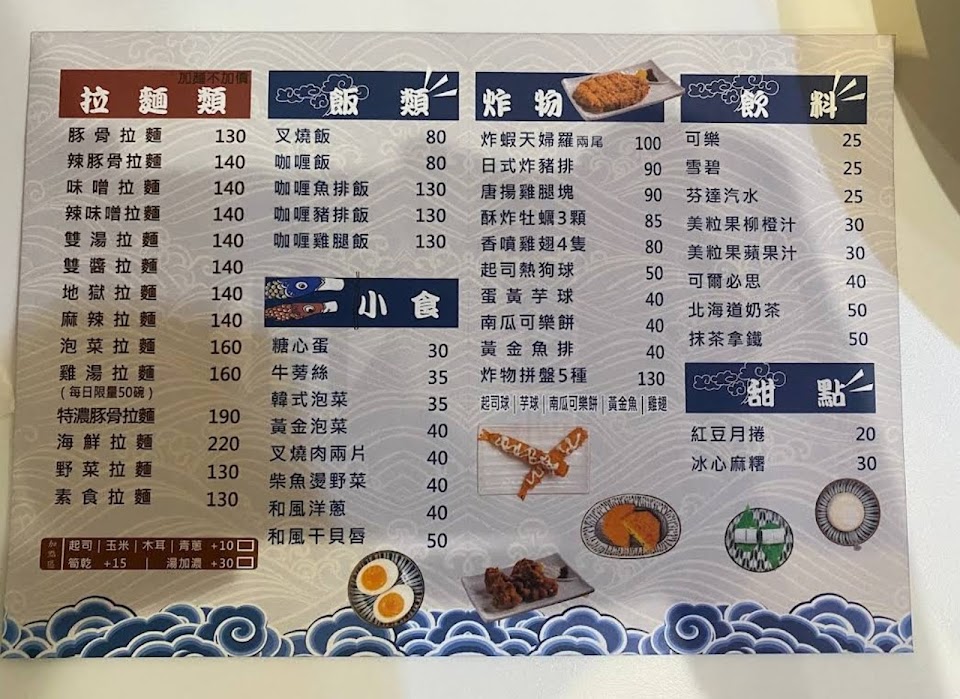 加麵不加價
拉麵類
豚骨拉麵 130
辣豚骨拉麵 140
味噌拉麵 140
辣味噌拉麵 140
雙湯拉麵 140
雙醬拉麵 140
地獄拉麵 140
麻辣拉麵 140
泡菜拉麵 160
雞湯拉麵 160
(每日限量50碗)
特濃豚骨拉麵 190
海鮮拉麵 220
野菜拉麵 130
素食拉麵 130
起司|玉米|木耳|青蔥 +10
筍乾 +15 | 湯加濃 +30
飯類
叉燒飯 80
咖喱飯 80
咖喱魚排飯 130
咖喱豬排飯 130
咖喱雞腿飯 130
小食
糖心蛋 30
牛蒡絲 35
韓式泡菜 35
黃金泡菜 40
叉燒肉兩片 40
柴魚燙野菜 40
和風洋蔥 40
和風干貝唇 50
炸物
炸蝦天婦羅兩尾 100
日式炸豬排 90
唐揚雞腿塊 90
酥炸牡蠣3顆 85
香噴雞翅4隻 80
起司熱狗球 50
蛋黃芋球 40
南瓜可樂餅 40
黃金魚排 40
炸物拼盤5種 130
起司球|芋球|南瓜可樂餅|黃金魚|雞翅
飲料
可樂 25
雪碧 25
芬達汽水 25
美粒果柳橙汁 30
美粒果蘋果汁 30
可爾必思 40
北海道奶茶 50
抹茶拿鐵 50
甜點
紅豆月捲 20
冰心麻糬 30